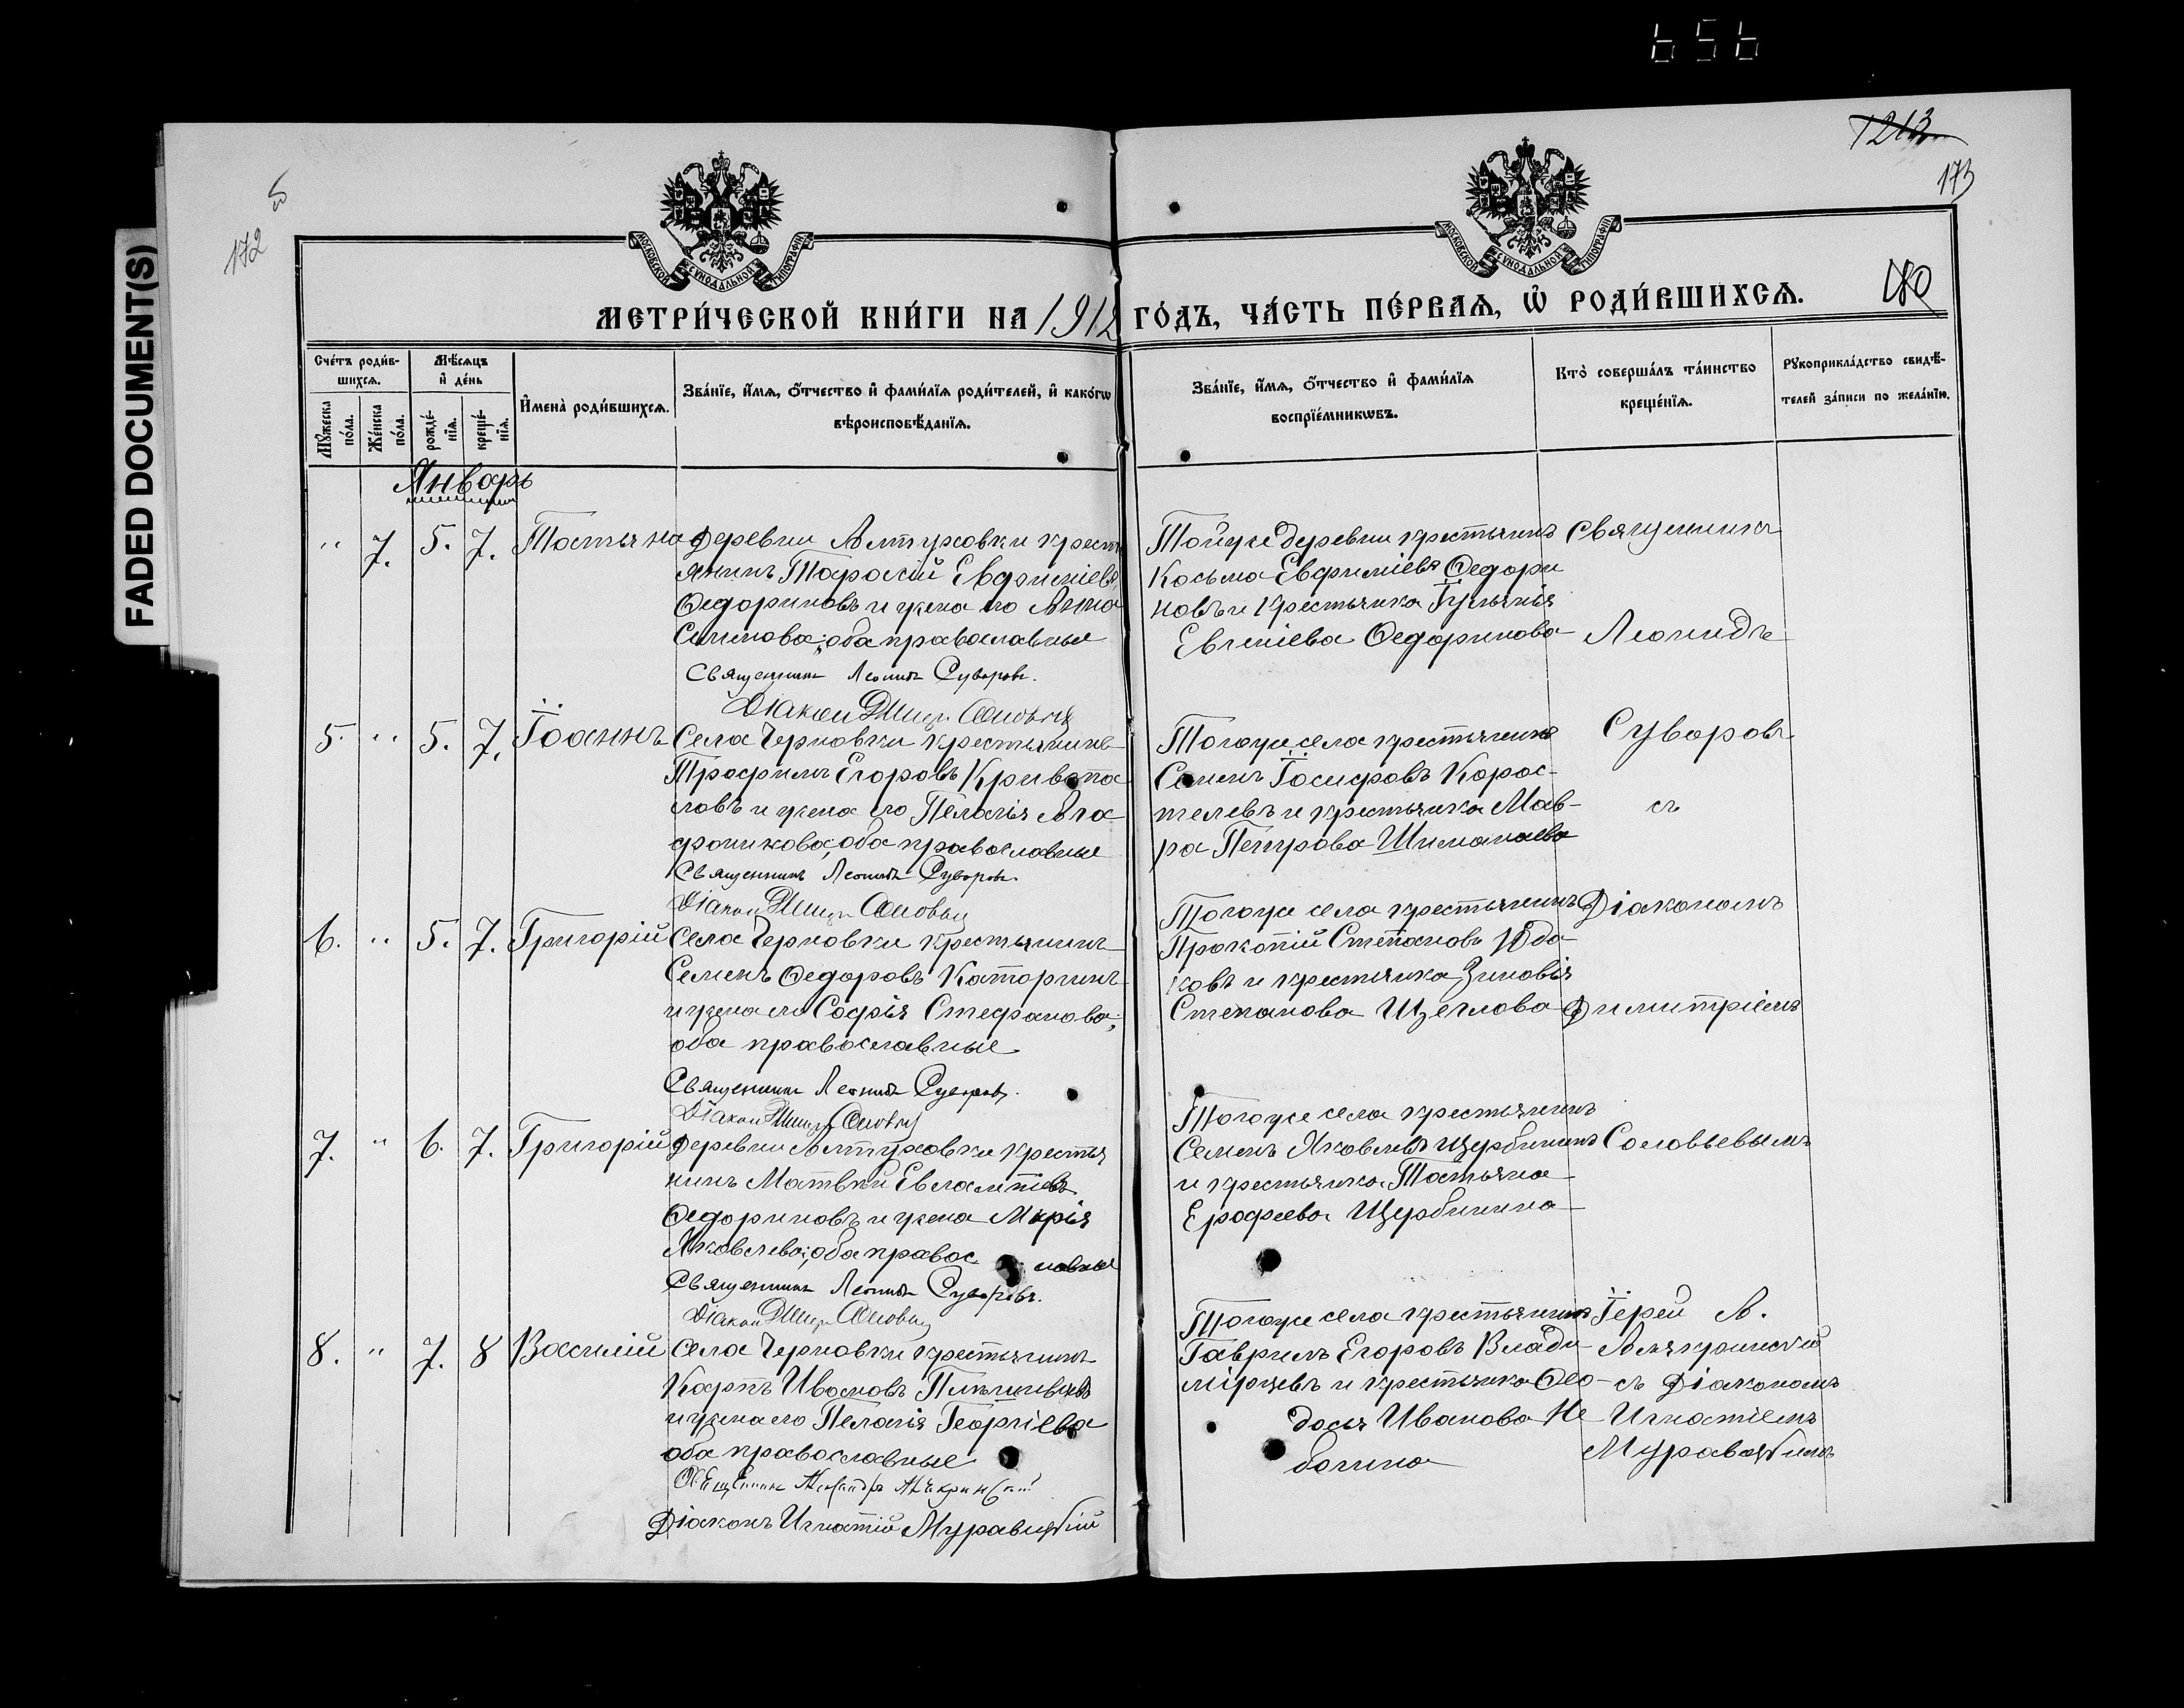 656
FADED DOCUMENT(S)
5
172
1213
173
МОСКОВСКОЙ СѴНОДАЛЬНОЙ ТИПОГРАФІИ
МОСКОВСКОЙ СѴНОДАЛЬНОЙ ТИПОГРАФІИ
МЕТРИ́ЧЕСКОЙ КНИ́ГИ НА 1912 ГО́ДЪ, ЧА́СТЬ ПЕ́РВАѦ, Ѡ҆ РОДИ́ВШИХСѦ.
Сче́тъ роди́в-
шихсѧ.
Мѣ́сѧцъ
и҆ де́нь
Мꙋ́жеска по́ла.
Же́нска по́ла.
рожде́-
нїѧ.
креще́-
нїѧ.
И҆мена̀ роди́вшихсѧ.
Зва́нїе, и҆́мѧ, ѻ҆́тчество и҆ фами́лїѧ роди́телей, и҆ како́гѡ
вѣроисповѣ́данїѧ.
Зва́нїе, и҆́мѧ, ѻ҆́тчество и҆ фами́лїѧ
воспрїе́мникѡвъ.
Кто̀ соверша́лъ та́инство
креще́нїѧ.
Рꙋкоприкла́дство свидѣ́-
телей за́писи по жела́нїю.
Январь
" 7. 5. 7. Татьяна
деревни Алтуховки крест
янинъ Тарасій Евфиміевъ
Ѳедориновъ и жена его Анна
Симнова; оба православные
Священникъ Леонидъ Суворовъ.
Діаконъ Димитр. Соловьевъ
Тойже деревни крестьянинъ
Косьма Евфиміевъ Ѳедори
новъ и крестьянка Іульянія
Евгеніева Ѳедоринова
Священникъ
Леонидъ
Суворовъ
съ
Діакономъ
Димитріемъ
Соловьевымъ
5. " 5. 7. Іоаннъ
Села Черновки крестьянинъ
Трофимъ Егоровъ Кривопа
ловъ и жена его Пелагія Ага
фоникова, оба православные
Священникъ Леонидъ Суворовъ.
Діаконъ Димитр. Соловьевъ
Тогоже села крестьянинъ
Семенъ Іосифовъ Корос-
телевъ и крестьянка Мав-
ра Петрова Шиманаева
6. " 5. 7. Григорій
Села Черновки крестьянинъ
Семенъ Ѳедоровъ Каторгинъ
и жена его Софія Стефанова;
оба православные
Священникъ Леонидъ Суворовъ.
Діаконъ Димитр. Соловьевъ
Тогоже села крестьянинъ
Прокопій Степановъ Юда
ковъ и крестьянка Зиновія
Степанова Щеглова
7. " 6. 7. Григорій
деревни Алтуховки крестья
нинъ Матвѣй Евлампіевъ
Ѳедориновъ и жена Марія
Яковлева; оба правос лавные
Священникъ Леонидъ Суворовъ.
Діаконъ Димитр. Соловьевъ
Тогоже села крестьянинъ
Семенъ Яковлевъ Щербининъ
и крестьянка Татьяна
Ерофеева Щербинина
8. " 7. 8 Василій
села Черновки крестьянинъ
Карпъ Ивановъ
и жена его Пелагія Георгіева
оба православные
Священникъ Александръ
Діаконъ Игнатій Муравитскій
Тогоже села крестьянинъ
Гавріилъ Егоровъ Влади-
мірцевъ и крестьянка Ѳео-
досья Иванова Не
богина
Іерей А.
съ Діакономъ
Игнатіемъ